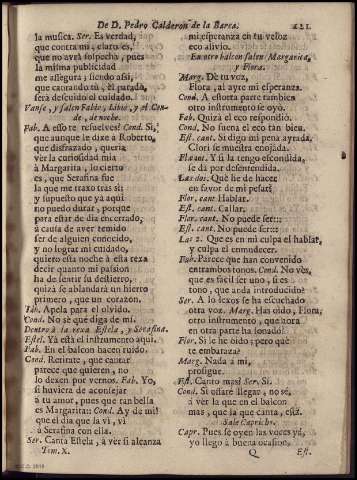 De D. Pedro Calderon de la Barca. 221.
la musica. Ser. Es verdad,
que contra mi, claro es,
que no avrà sospecha, pues
la misma publicidad
me assegura; siendo assi,
que cautando tù, èl parado,
serà descuido el cuidado.
Vanse, y salen Fabio, Libio, y el Conde, de noche.
Fab. A esso te resuelves? Cond. Si,
que aunque le dixe à Roberto,
que disfrazado, queria
ver la curiosidad mia
à Margarita, lo cierto
es, que Serafina fue
la que me traxo tras si:
y supuesto que yà aqui
no puedo durar, porque
para estar de dia encerrado,
à causa de aver temido
ser de alguien conocido,
y no lograr mi cuidado,
quiero esta noche à esta rexa
decir quanto mi passion
ha de sentir su destierro,
quizà se ablandarà un hierro
primero, que un corazon.
Fab. Apela para el olvido.
Cond. No sè què diga de mi.
Dentro à la rexa Estela, y Serafina.
Estel. Yà està el instrumento aqui.
Fab. En el balcon hacen ruido.
Cond. Retirate, que sentir
parece que quieren, no
lo dexen por vernos. Fab. Yo,
si huviera de aconsejar
à tu amor, pues que tan bella
es Margarita: Cond. Ay de mi!
que el dia que la vi, vi
à Serafina con ella.
Ser. Canta Estela, à vèr si alcanza
Tom. X.
mi esperanza en tu veloz
eco alivio.
En otro balcon salen Margarita,
y Flora.
Marg. De tu voz,
Flora, al ayre mi esperanza.
Cond. A estotra parte tambien
otro instrumento se oyò.
Fab. Quizà el eco respondiò.
Cond. No suena el eco tan bien.
Est. cant. Si digo mi pena ayrada,
Clori se muestra enojada.
Flor. cant. Y si la tengo escondida,
se dà por desentendida.
Las dos. Què he de hacer
en favor de mi pesar?
Flor. cant. Hablar.
Est. cant. Callar.
Flor. cant. No puede ser:::
Est. cant. No puede ser:::
Las 2. Que es en mi culpa el hablar,
y culpa el enmudecer.
Fab. Parece que han convenido
entrambos tonos. Cond. No vès,
que es facil ser uno, si es
tono, que anda introducido?
Ser. A lo lexos se ha escuchado
otra voz. Marg. Has oido, Flora,
otro instrumento, que ahora
en otra parte ha sonado?
Flor. Si le he oido; pero què
te embaraza?
Marg. Nada à mi,
prosigue.
Est. Canto mas? Ser. Si.
Cond. Si ossarè llegar, no sè,
à vèr la que en el balcon
mas, que la que canta, està.
Sale Capricho.
Capr. Pues se oyen las voces yà,
yo llego à buena ocasion.
Q Est.